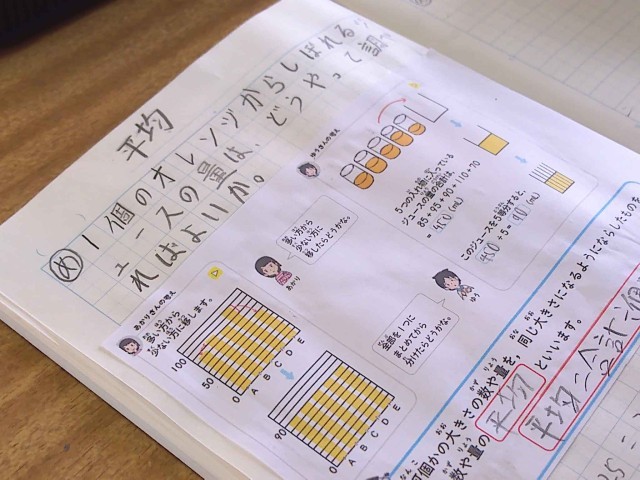 平均
め 1個のオレンジからしぼれるジ
ュースの量は、どうやって調べ
ればよいか。
ゆうさんの考え
5つの入れ物に入っている
ジュースの量の合計は、
= 450 (mL)
このジュースを5等分すると、
450 ÷ 5 = 90 (mL)
多い方から
少ない方に
移したらどうかな。
あかり
全部を1つに
まとめてから
分けたらどうかな。
ゆう
あかりさんの考え
多い方から
少ない方に移します。
100
50
0
A B C D E
90
0
A B C D E
何個かの大きさの数や量を、同じ大きさになるようにならしたものを
数や量の 平均 といいます。
平均=合計÷個